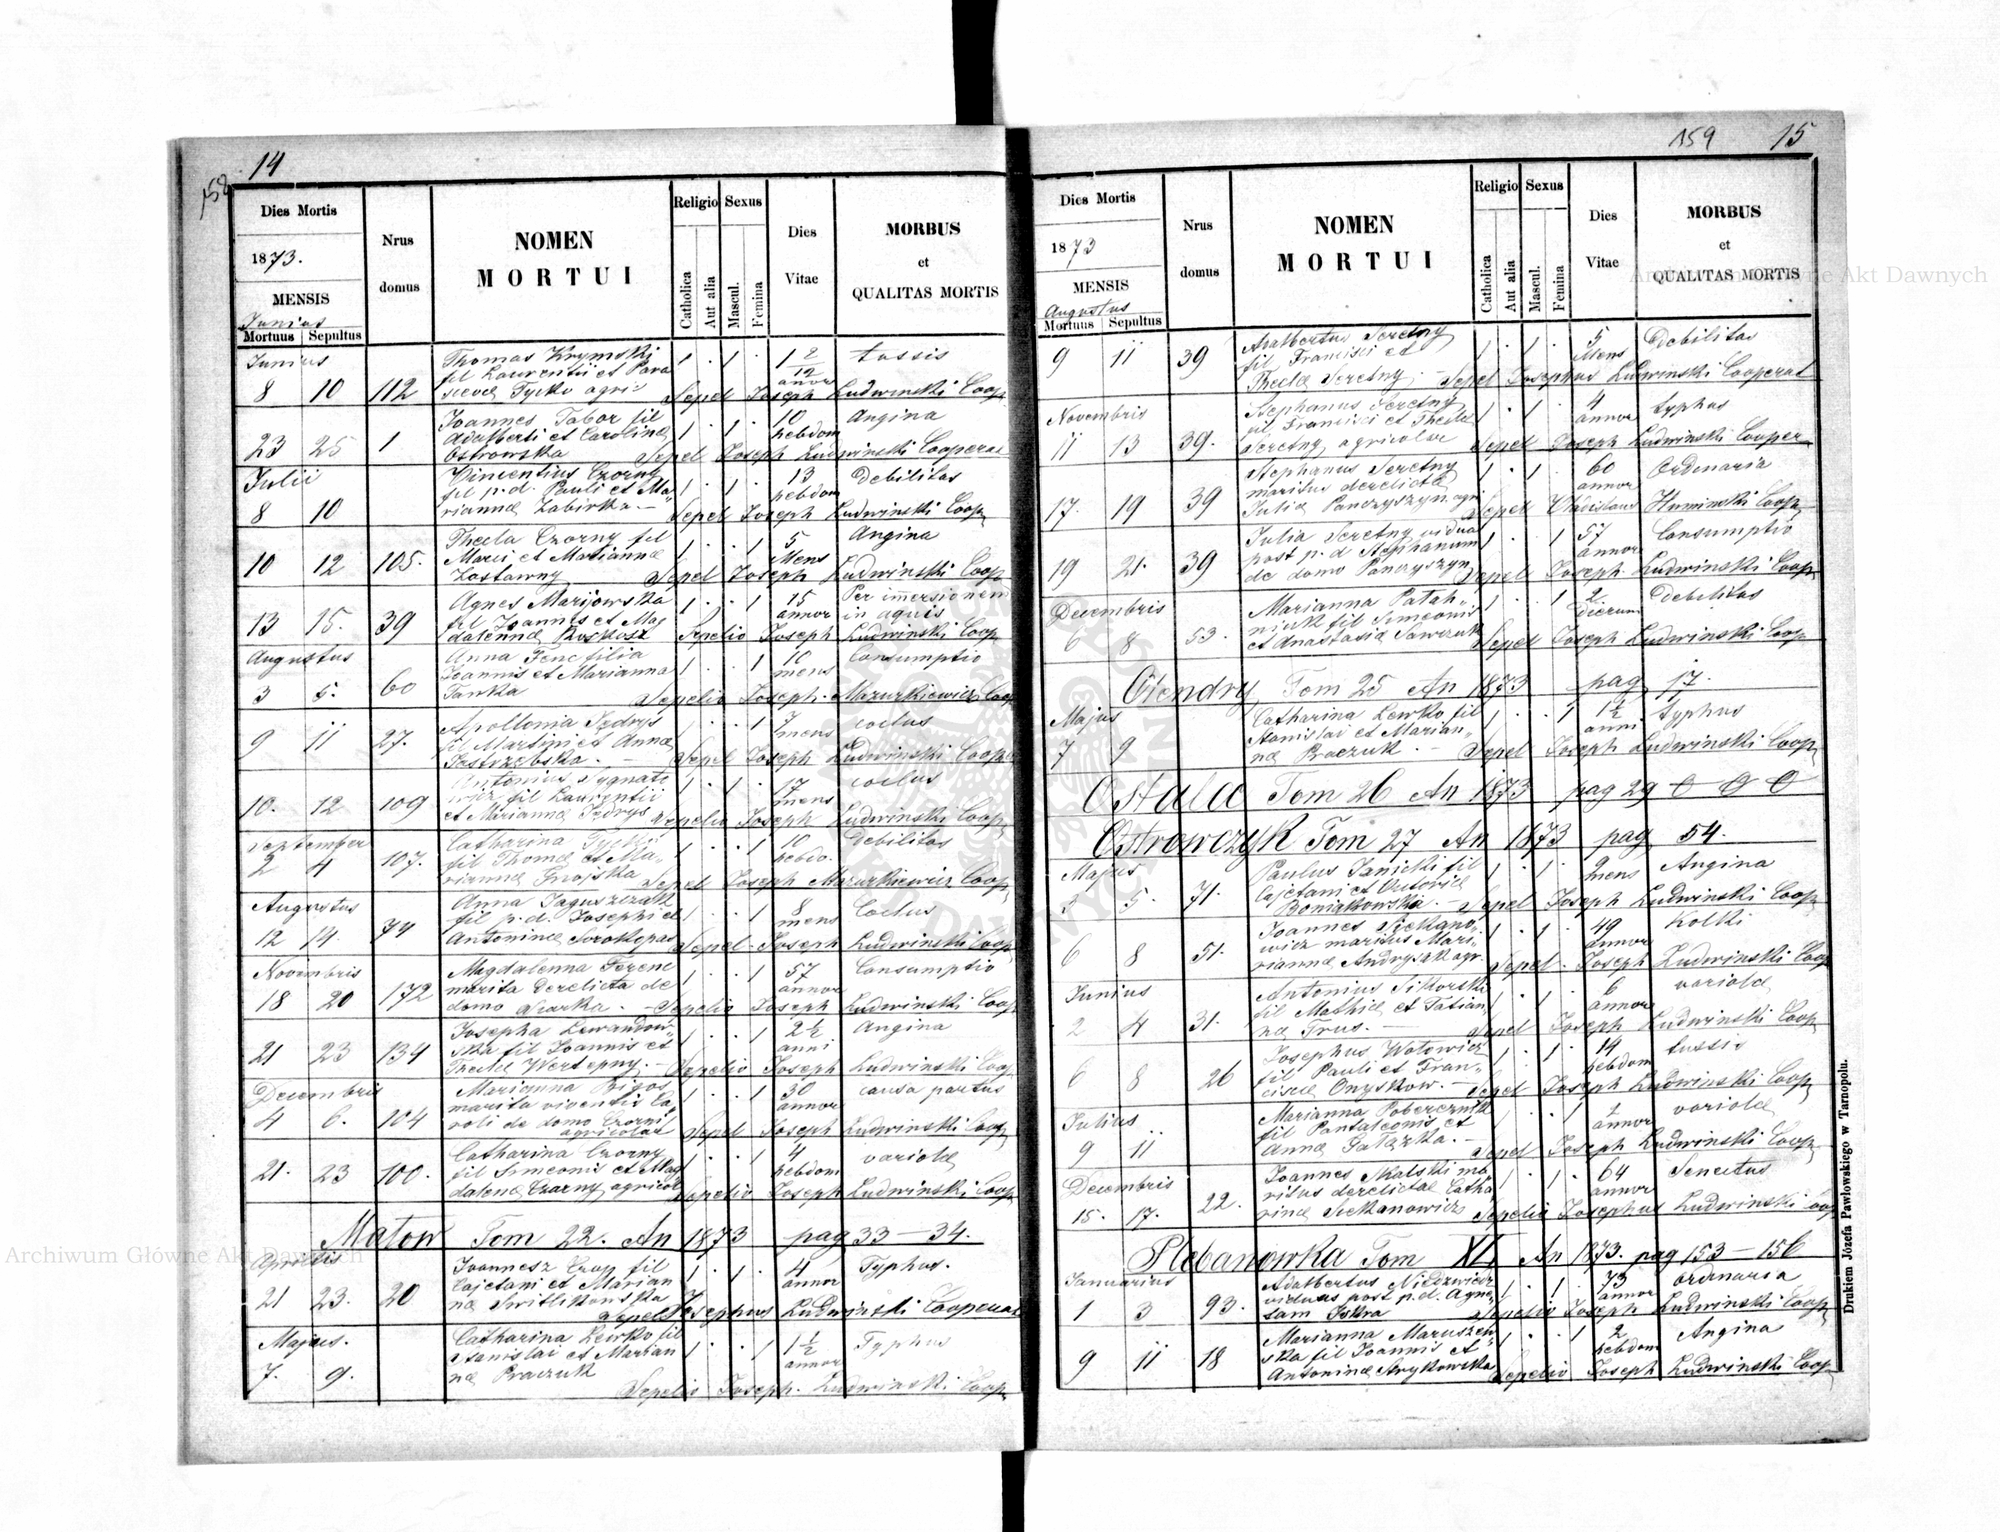 14
158
Dies Mortis
1873.
MENSIS
Junius
Mortuus Sepultus
Nrus
domus
NOMEN
MORTUI
Religio Sexus
Catholica
Aut alia
Mascul.
Femina
Dies
Vitae
MORBUS
et
QUALITAS MORTIS
Junius
8 10 112
Thomas Krymski 1 . 1 . 1 2/12 tussis
fil Laurentii et Para
annor
Sepel Joseph Ludwinski Coop
23 25 1
Joannes Tabor fil 1 . 1 . 10 Angina
Adalberti et Carolina hebdom
Ostrowska Sepel Joseph Ludwinski Cooperat
Julii
8 10
Vincentius Czorny 1 . 1 . 13 Debilitas
fil p.d. Pauli et Ma, hebdom
rianna Zabirka - Sepel Joseph Ludwinski Coop
10 12 105.
Thecla Czorny fil 1 . . 1 5 Angina
Marci et Marianna Mens
Zastawny Sepel Joseph Ludwinski Coop
13 15. 39
Agnes Marijowska 1 . . 1 15 Per imersionem
fil Joannes et Mag annor in aquis
dalenna Sepelio Joseph Ludwinski Coop
Augustus
3 5. 60
Anna Fenc filia 1 . . 1 Consumptio
Joannis et Marianna mens
Tanka Sepelio Joseph. Mazurkiewicz Coop
9 11 27.
Apollonia Jędrys 1 . . 1 7 coctus
fil Martini et Anna mens
Jastrzebska. - Sepel Joseph Ludwinski Cooper
10. 12 109
Antonius 1 . 1 . 17 coctus
fil Laurentii mens
et Marianna Jędrys Sepelio Joseph Ludwinski Coop
September
2 4 107.
Catharina 1 . . 1 10 Debilitas
fil Thoma et Ma, hebdo.
rianna Gnojska Sepel Joseph Mazurkiewicz Coop
Augustus
12 14. 74
Anna 1 . . 1 8 Coctus
fil p.d. Josephi et mens
Antonina Sorokopas Sepel Joseph Ludwinski Coop
Novembris
18 20 172
Magdalenna Ferenc 1 . . 1 57 Consumptio
marita derelicta de annor
domo - Sepelio Joseph Ludwinski Coop
21 23 134
Josepha Lewandow, 1 . . 1 2 1/2 Angina
ska fil Joannis et anni
Thecla Wertepny. - Sepelio Joseph Ludwinski Coop
Decembris
4 6. 104
Marianna 1 . . 1 30 causa partus
marita viventis Ca, annor
roli de domo Czorni
agricolae Sepel Joseph Ludwinski Coop
21. 23 100.
Catharina Czorny 1 . . 1 4 variola
fil Simconis et Mag hebdom
dalena Czarny agricol Sepelio Joseph Ludwinski Coop
Matow Tom 22. An 1873 pag 33 - 34.
Aprilis
21 23. 20
Joannesz Czop fil 1 . 1 . 4 Typhus.
Cajetani et Marian annor
na Switlikowska
Sepel Josephus Ludwinski Cooperat
Majus.
7. 9.
Catharina Lewko fil 1 . . 1 1 1/2 Typhus
Stanislai et Marian annor
na Praczuk
Sepelio Joseph. Ludwinski Coop
159 15
Dies Mortis
1873
MENSIS
Augustus
Mortuus Sepultus
Nrus
domus
NOMEN
MORTUI
Religio Sexus
Catholica
Aut alia
Mascul.
Femina
Dies
Vitae
MORBUS
et
QUALITAS MORTIS
9 11 39
Adalbertus Seretny 1 . 1 . 5 Debilitas
fil Francisci et Mens
Thecla Seretny. - Sepel Josephus Ludwinski Cooperat
Novembris
11 13 39.
Stephanus Seretny 1 . 1 . 4 typhus
fil Francisci et Thecla annor
Seretny agricolae Sepel Joseph Ludwinski Cooper
17. 19 39
Stephanus Seretny 1 . 1 . 60 Ordinaria
maritus derelicta annor
Julia Panczyszyn agri Sepel Wladislaus Huminski Coop
19 21. 39
Julia Seretny vidua 1 . . 1 57 Consumptio
post p.d Stephanum annor
de domo Panczyszyn Sepel Joseph Ludwinski Coop
Decembris
6 8 53.
Marianna Patah, 1 . . 1 2 Debilitas
niuk fil Simconis Dierum
et Anastasia Sawczuk Sepel Joseph Ludwinski Coop
Olendry Tom 25 An 1873 pag 17.
Majus
7 9
Catharina Lewko fil 1 . . 1 1 1/2 typhus
Stanislai et Marian, anni
na Praczuk. - Sepel Joseph Ludwinski Coop
Ostala Tom 26 An 1873 pag 29 0 0 0
Ostrowczyk Tom 27 An 1873 pag 54.
Majus
3 5. 71.
Paulus Janicki fil 1 . 1 . 9 Angina
Cajetani et mens
Boniakowska. - Sepel Joseph Ludwinski Coop
6 8 51.
Joannes Siekano, 1 . 1 . 49 Kolki
wicz maritus Mari, annor
rianna Andryszk agr. Sepel. Joseph Ludwinski Coop
Junius
2 4 31.
Antonius Sikorski 1 . 1 . 6 variola
fil Mathia et Tatian annor
na Trus. - Sepel Joseph Ludwinski Coop
6 8 26
Josephus Wotowicz 1 . 1 . 14 tussis
fil Pauli et Fran, hebdom
cisca Onyskow. - Sepel Joseph Ludwinski Coop
Julius
9 11
Marianna Pobereznik 1 . . 1 variola
fil Pantaleonis et annor
Anna Galazka. - Sepel Joseph Ludwinski Coop
Decembris
15. 17. 22.
Joannes Skalski ma 1 . 1 . 64 Senectus
ritus derelictae Catha, annor
rina Siekanowicz Sepelio Josephus Ludwinski Coop
Plebanowka Tom XL An 1873. pag 153 - 156
Januarius
1 3 93.
Adalbertus Niedzwiedz 1 . 1 . 73 ordinaria
viduus post p.d. Agne, annor
tam Iskra Sepelio Joseph Ludwinski Coop
9 11 18
Marianna Maruszew, 1 . . 1 2 Angina
ska fil Joannis et hebdom
Antonina Strykowska Sepelio Joseph Ludwinski Coop
Drukiem Józefa Pawłowskiego w Tarnopolu.
Archiwum Główne Akt Dawnych
Archiwum Główne Akt Dawnych